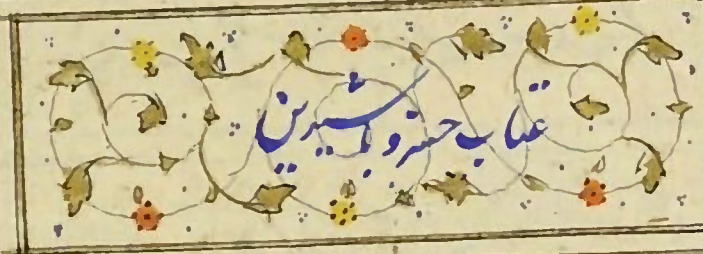 عتاب خسرو با شیرین